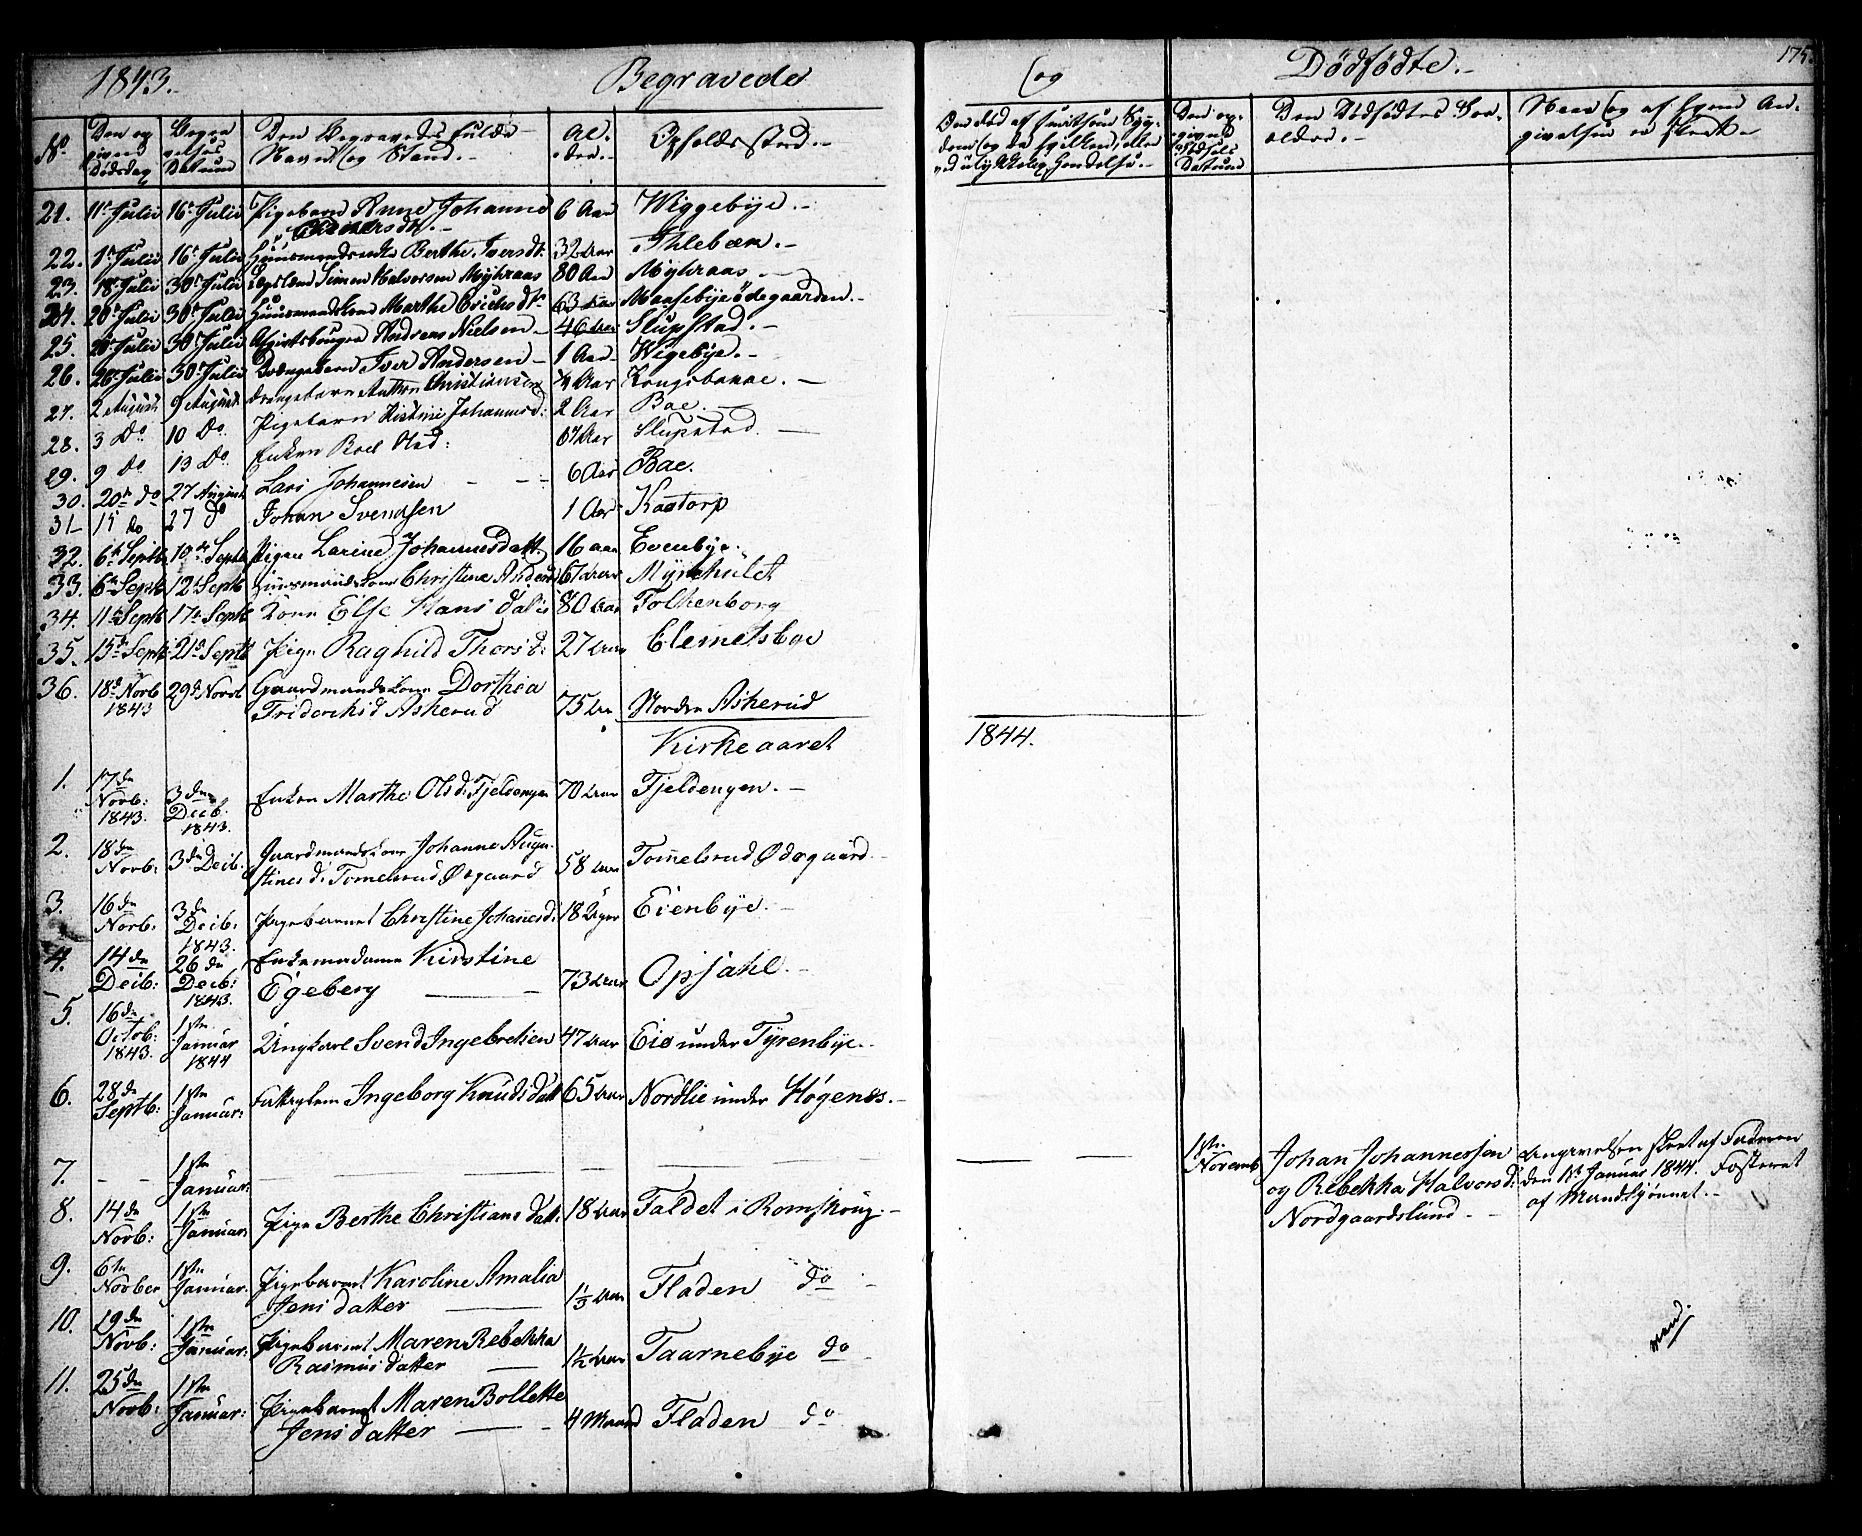 1843.
Begravede
og
Dødfødte.
175
No
Den op
given
Dødsdag
Begra
velses
Datum
Den Begravedes fulde
Navn og Stand.
Al-
der.
Opholdssted.
Den op-
givne
Fødsels
Datum
Den Dødfødtes For-
ældre.
Naar og af hvem An-
givelsen er skeet.
21. 11te Julii 16te Julii Pigebarn Anne Johanne 6 Aar Wiggebye.
22. 1te Julii 16te Julii Huusmandsenke Berthe Iversdt. 32 Aar Ihlebæk.
23. 18te Julii 30te Julii Simen Halvorsen Myhraas 80 Aar Myhraas
24. 20te Julii 30te Julii Huusmandskone Marthe Erichsdtr 63 Aar Maasebyeødegaarden.
25. Julii 30te Julii Andreas Nielsen 46 Aar Slupstad.
26. 26te Julii 30te Julii Drengebarn Iver Andersen 1 Aar Wigebye.
27. 2 August 9 August Drengebarn Anthon Christiansen ¼ Aar
28. 3 Do 10 Do Pigebarn Kistine Johannesd: 2 Aar Bae.
29. 9 Do 13 Do Enken Olsd: 67 Aar Slupstad.
30. 20de do 27 August Lars Johannesen 6 Aar Bae.
31 15 do 27 do Johan Svendsen 1 Aar Kaatorp
32. 6te Septb 10de Septb Pigen Larine Johannesdatt. 16 aar Evenbye.
33. 6te Septb 12te Septb Huusmandskone Christine Andersd 67 Aar Myrehulet
34. 11te Septb 17de Septb Kone Else Hans dat: 80 Aar Folkenborg
35. 15de Septb 21de Septb Pige Ragnild Thors d: 27 Aar Clemetsbøe
36. 18de Novb 29de Novb Gaardmandskone Dorthea
1843 Friderichsd Askerud 75 Aar Nordre Askerud
Kirkeaaret
1844.
1. 17de
Novb:
1843. 3de
Decb.
1843. Enken Marthe Ols d: Fjeldengen 70 Aar Fjeldengen.
2. 18de
Novb: 3de Decb. Gaardmandskone Johanne Augu-
stines d: Tomelsrud Øegaard 58 Aar Tommelsrud Ødegaard.
3. 16de
Novb: 3de
Decb:
1843. Pigebarnet Christine Johannesd: 18 Uger Eienbye.
4. 14de
Decb: 26de
Decb:
1843. Enkemadame Kirstine
Egeberg 73 Aar Opsahl.
5. 16de
Octob:
1843. 1ste
Januar
1844 Ungkarl Svend Ingebretsen 47 Aar Eie under Tyrenbye.
6. 28de
Septb: 1ste
Januar: Fattiglem Ingeborg Knuds datt 65 Aar Nordlie under Høgenes.
7. 1ste
Januar:
1ste
Novemb Johan Johannessen
og Rebekka Halvors d:
Nordgaardslund.
Angivelsen skeet af Faderen
den 1ste Januar 1844. Fosteret
af Mandkjønnet.
8. 14de
Novb: 1ste
Januar: Pige Berthe Christians datt. 18 Aar Faldet i Romskoug.
9. 6te
Novber 1ste
Januar. Pigebarnet Karoline Amalia
Jens datter 1⅓ Aar Fladen do
10. 29de
Novb: 1ste
Januar: Pigebarnet Maren Rebekka
Rasmus datter 1½ Aar Taarnebye do
11. 25de
Novb: 1ste
Januar: Pigebarnet Maren Bollette
Jens datter 4 Maaned Fladen do